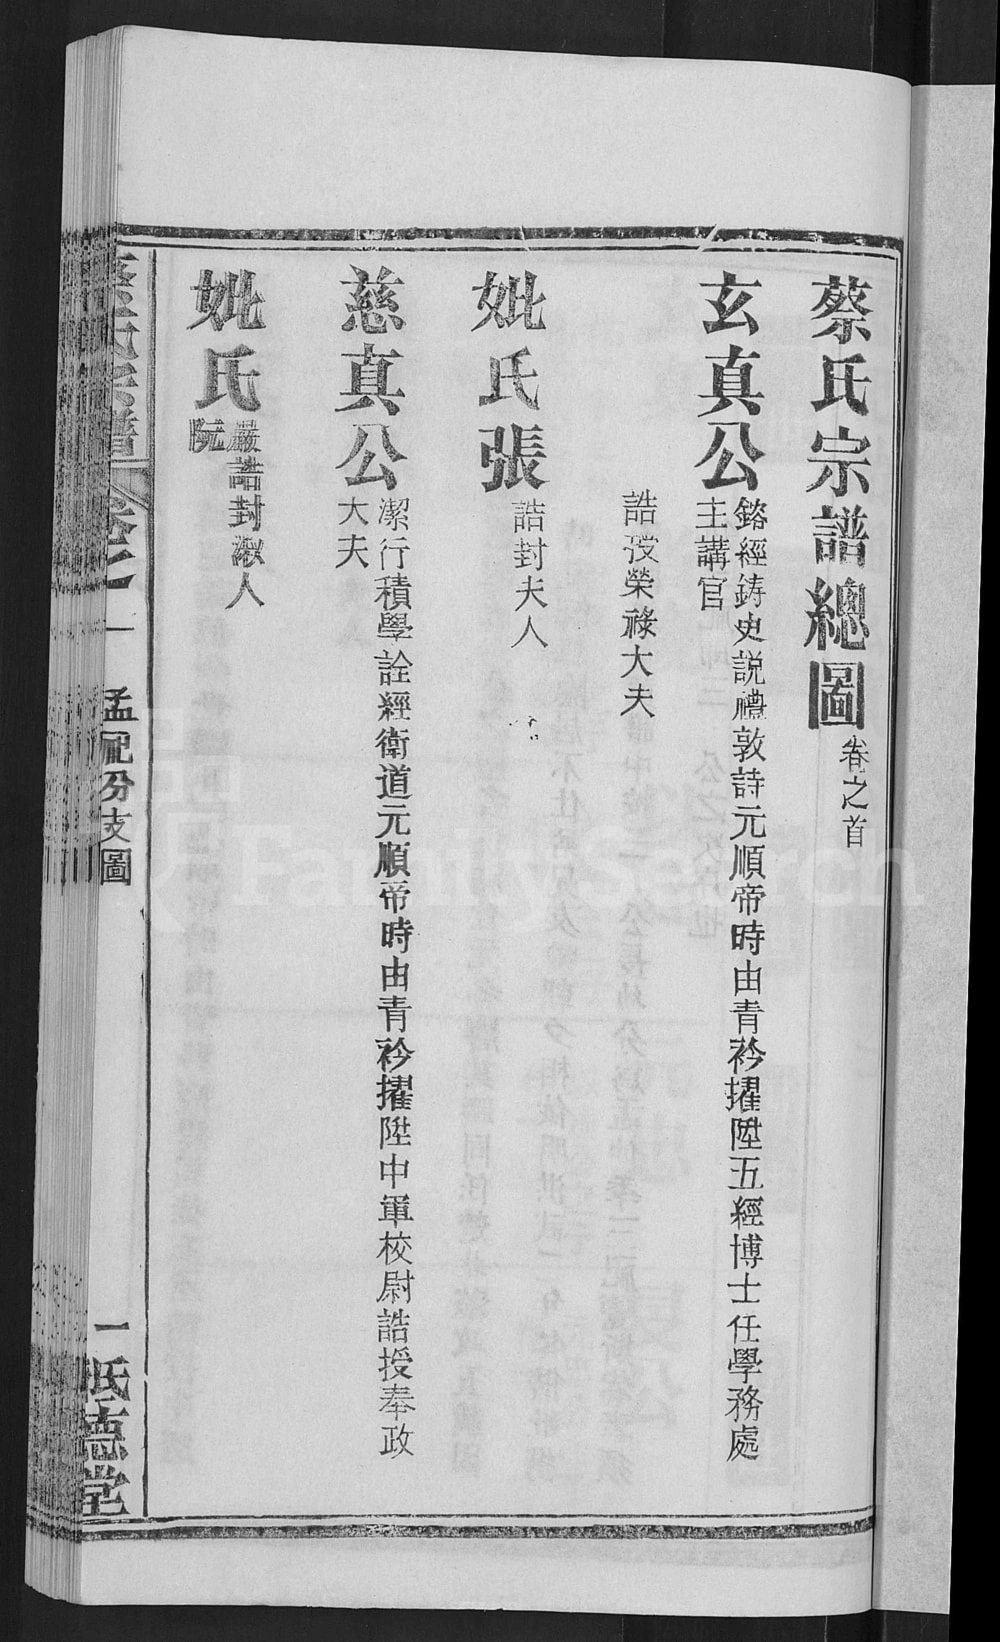 蔡氏宗譜總圖卷之首
玄真公
鎔經鋳史説禮敦詩元順帝時由青衿擢陞五經博士任學務處
主講官
誥授榮祿大夫
妣氏張
誥封夫人
慈真公
潔行積學詮經衛道元順帝時由青衿擢陞中軍校尉誥授奉政
大夫
妣氏
嚴誥封淑人
阮
蔡氏宗譜
卷之一
孟祀分支圖
一
德堂
FamilySearch